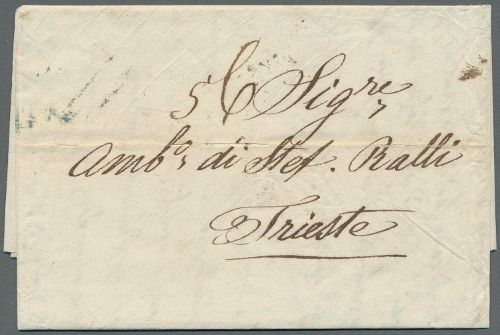 56 Sigre
Ambo. di Stef. Ralli
Trieste